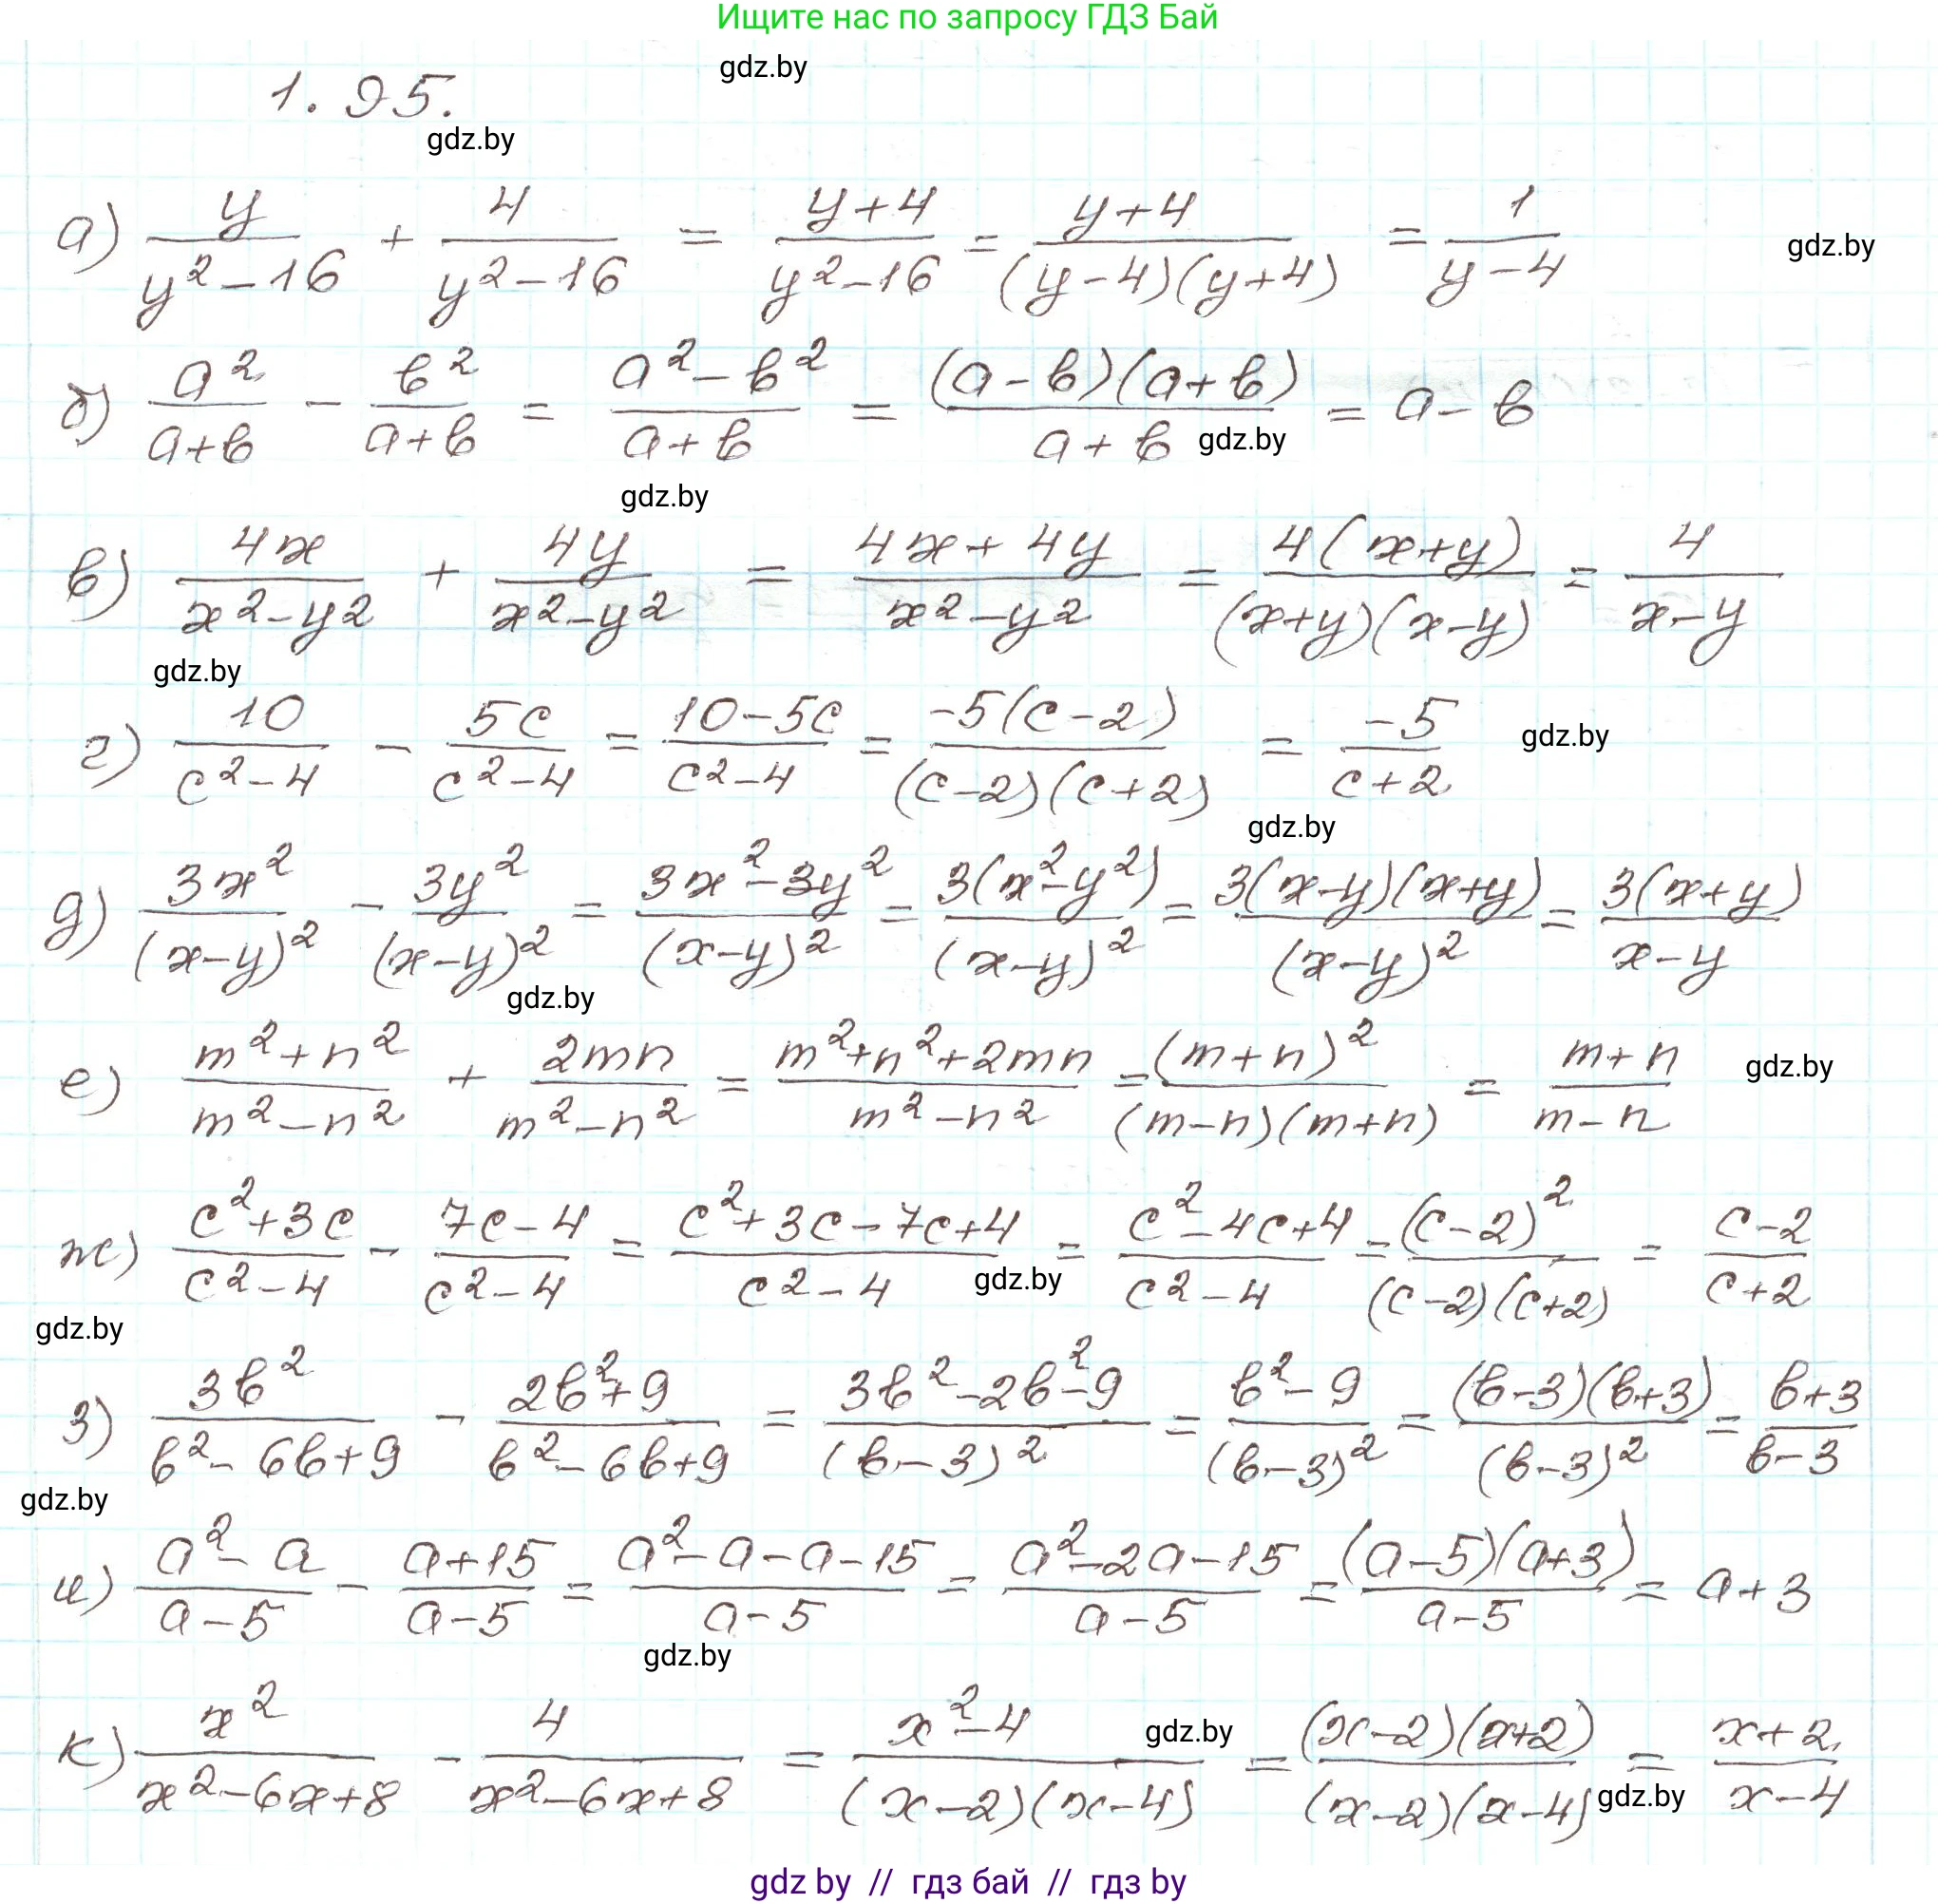 Ищите нас по запросу ГДЗ Бай
gdz.by
1.95.
gdz.by
а) y/(y²-16) + 4/(y²-16) = (y+4)/(y²-16) = (y+4)/((y-4)(y+4)) = 1/(y-4)
gdz.by
б) a²/(a+b) - b²/(a+b) = (a²-b²)/(a+b) = ((a-b)(a+b))/(a+b) = a-b
gdz.by
gdz.by
в) 4x/(x²-y²) + 4y/(x²-y²) = (4x+4y)/(x²-y²) = 4(x+y)/((x+y)(x-y)) = 4/(x-y)
gdz.by
г) 10/(c²-4) - 5c/(c²-4) = (10-5c)/(c²-4) = -5(c-2)/((c-2)(c+2)) = -5/(c+2)
gdz.by
gdz.by
д) 3x²/(x-y)² - 3y²/(x-y)² = (3x²-3y²)/(x-y)² = 3(x²-y²)/(x-y)² = 3(x-y)(x+y)/(x-y)² = 3(x+y)/(x-y)
gdz.by
е) (m²+n²)/(m²-n²) + 2mn/(m²-n²) = (m²+n²+2mn)/(m²-n²) = (m+n)²/((m-n)(m+n)) = (m+n)/(m-n)
gdz.by
ж) (c²+3c)/(c²-4) - (7c-4)/(c²-4) = (c²+3c-7c+4)/(c²-4) = (c²-4c+4)/(c²-4) = (c-2)²/((c-2)(c+2)) = (c-2)/(c+2)
gdz.by
gdz.by
з) 3b²/(b²-6b+9) - (2b²+9)/(b²-6b+9) = (3b²-2b²-9)/(b-3)² = (b²-9)/(b-3)² = (b-3)(b+3)/(b-3)² = (b+3)/(b-3)
gdz.by
и) (a²-a)/(a-5) - (a+15)/(a-5) = (a²-a-a-15)/(a-5) = (a²-2a-15)/(a-5) = (a-5)(a+3)/(a-5) = a+3
gdz.by
к) x²/(x²-6x+8) - 4/(x²-6x+8) = (x²-4)/((x-2)(x-4)) = (x-2)(x+2)/((x-2)(x-4)) = (x+2)/(x-4)
gdz.by
gdz.by
gdz by // гдз бай // гдз by